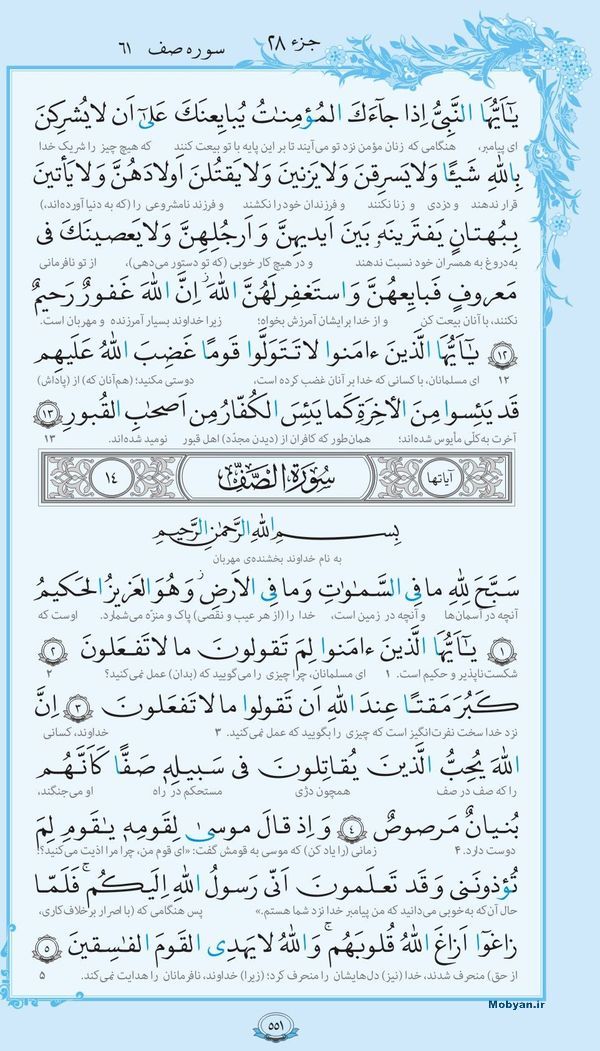 جزء ۲۸
سوره صف ۶۱
يٰٓاَيُّهَا النَّبِيُّ اِذا جآءَكَ المُؤمِنٰتُ يُبايِعنَكَ عَلىٰٓ اَن لا يُشرِكنَ
ای پیامبر، هنگامی که زنان مؤمن نزد تو می‌آیند تا بر این پایه با تو بیعت کنند که هیچ چیز را شریک خدا
بِاللّٰهِ شَيـًٔا وَلا يَسرِقنَ وَلا يَزنينَ وَلا يَقتُلنَ اَولادَهُنَّ وَلا يَأتينَ
قرار ندهند و دزدی و زنا نکنند و فرزندان خود را نکشند و فرزند نامشروعی را (که به دنیا آورده‌اند،)
بِبُهتانٍ يَفتَرينَهٗ بَينَ اَيديهِنَّ وَ اَرجُلِهِنَّ وَلا يَعصينَكَ فى
به‌دروغ به همسران خود نسبت ندهند و در هیچ کار خوبی (که تو دستور می‌دهی)، از تو نافرمانی
مَعروفٍ فَبايِعهُنَّ وَاستَغفِر لَهُنَّ اللّٰهَ ۖ اِنَّ اللّٰهَ غَفورٌ رَحيمٌ
نکنند، با آنان بیعت کن و از خدا برایشان آمرزش بخواه؛ زیرا خداوند بسیار آمرزنده و مهربان است.
۱۲ يٰٓاَيُّهَا الَّذينَ ءامَنوا لا تَتَوَلَّوا قَومًا غَضِبَ اللّٰهُ عَلَيهِم
۱۲ ای مسلمانان، با کسانی که خدا بر آنان غضب کرده است، دوستی مکنید؛ (هم‌آنان که) از (پاداش)
قَد يَئِسوا مِنَ الأٰخِرَةِ كَما يَئِسَ الكُفّارُ مِن اَصحٰبِ القُبورِ ۱۳
آخرت به‌کلّی مأیوس شده‌اند؛ همان‌طور که کافران از (دیدن مجدّد) اهل قبور نومید شده‌اند. ۱۳
آیاتها سُورَةُ الصَّفّ ۱۴
بِسمِ اللّٰهِ الرَّحمٰنِ الرَّحيمِ
به نام خداوند بخشنده‌ی مهربان
سَبَّحَ لِلّٰهِ ما فِى السَّمٰوٰتِ وَما فِى الاَرضِ ۖ وَهُوَ العَزيزُ الحَكيمُ
آنچه در آسمان‌ها و آنچه در زمین است، خدا را (از هر عیب و نقصی) پاک و منزّه می‌شمارد. اوست که
۱ يٰٓاَيُّهَا الَّذينَ ءامَنوا لِمَ تَقولونَ ما لا تَفعَلونَ ۲
شکست‌ناپذیر و حکیم است. ۱ ای مسلمانان، چرا چیزی را می‌گویید که (بدان) عمل نمی‌کنید؟ ۲
كَبُرَ مَقتًا عِندَ اللّٰهِ اَن تَقولوا ما لا تَفعَلونَ ۳ اِنَّ
نزد خدا سخت نفرت‌انگیز است که چیزی را بگویید که عمل نمی‌کنید. ۳ خداوند، کسانی
اللّٰهَ يُحِبُّ الَّذينَ يُقاتِلونَ فى سَبيلِهٖ صَفًّا كَاَنَّهُم
را که صف در صف همچون دژی مستحکم در راه او می‌جنگند،
بُنيانٌ مَرصوصٌ ۴ وَ اِذ قالَ موسىٰ لِقَومِهٖ يٰقَومِ لِمَ
دوست دارد. ۴ زمانی (را یاد کن) که موسی به قومش گفت: «ای قوم من، چرا مرا اذیت می‌کنید؟!
تُؤذونَنى وَ قَد تَعلَمونَ اَنّى رَسولُ اللّٰهِ اِلَيكُم ۖ فَلَمّا
حال آن‌که به‌خوبی می‌دانید که من پیامبر خدا نزد شما هستم.» پس هنگامی که (با اصرار بر خلاف‌کاری،
زاغوٓا اَزاغَ اللّٰهُ قُلوبَهُم ۚ وَاللّٰهُ لا يَهدِى القَومَ الفٰسِقينَ ۵
از حق) منحرف شدند، خدا (نیز) دل‌هایشان را منحرف کرد؛ (زیرا) خداوند، نافرمانان را هدایت نمی‌کند. ۵
Mobyan.ir
۵۵۱